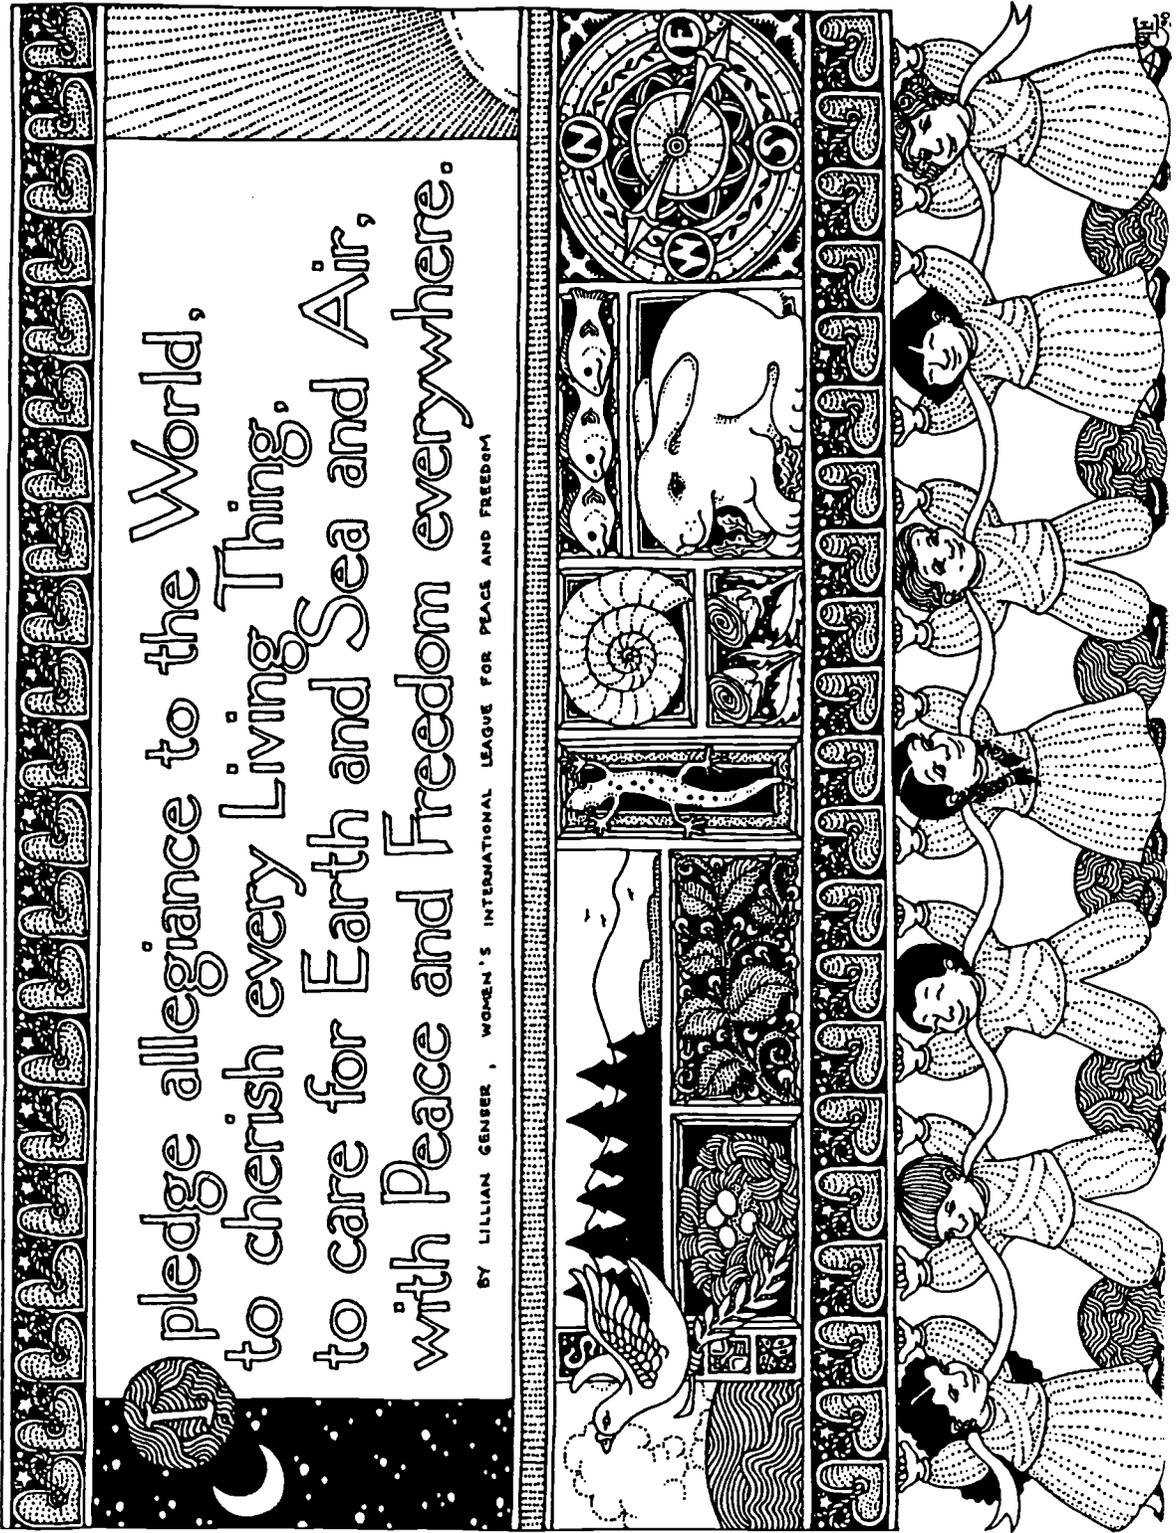 I pledge allegiance to the World,
to cherish every Living Thing,
to care for Earth and Sea and Air,
with Peace and Freedom everywhere.
BY LILLIAN GENSER, WOMEN'S INTERNATIONAL LEAGUE FOR PEACE AND FREEDOM
N
E
S
W